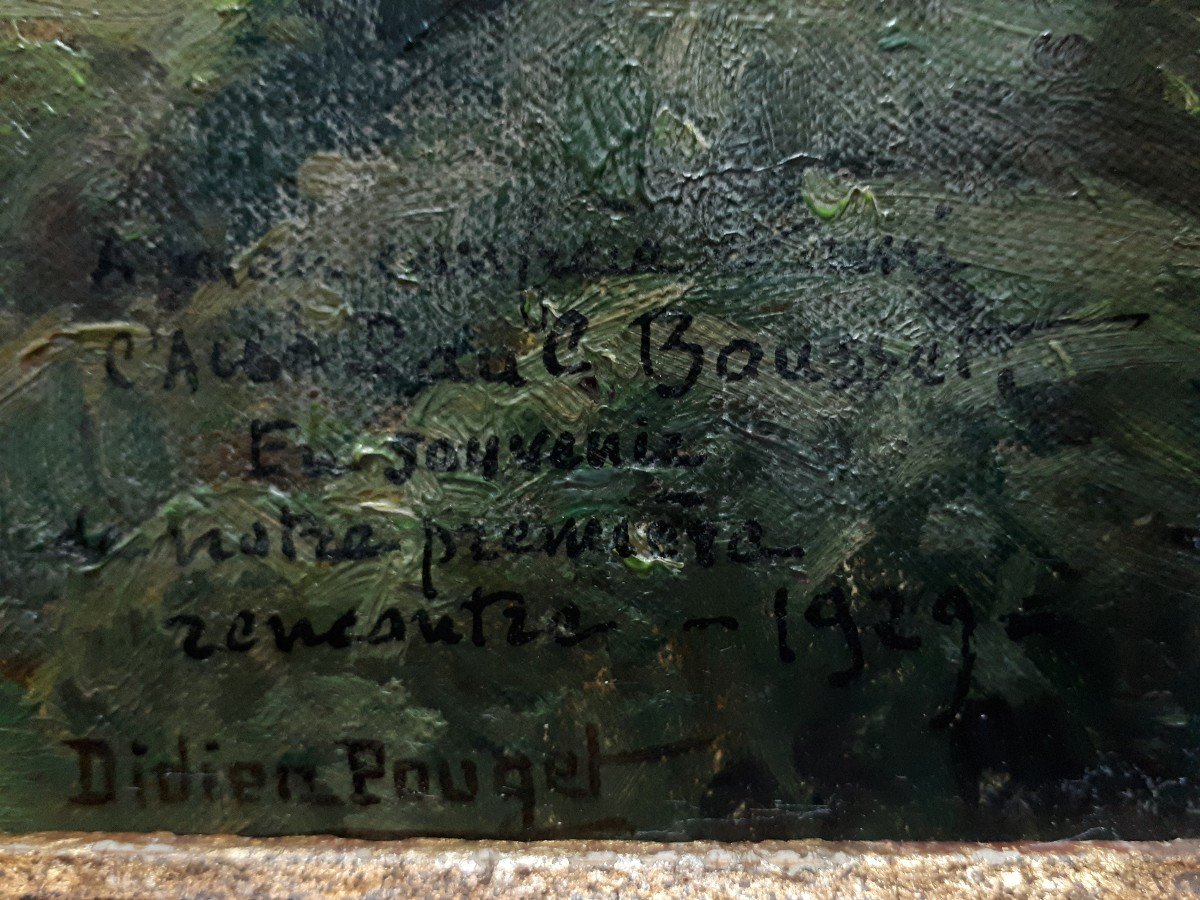 A
Paul Bousset
En souvenir
de notre première
rencontre - 1929 -
Didier Pouget